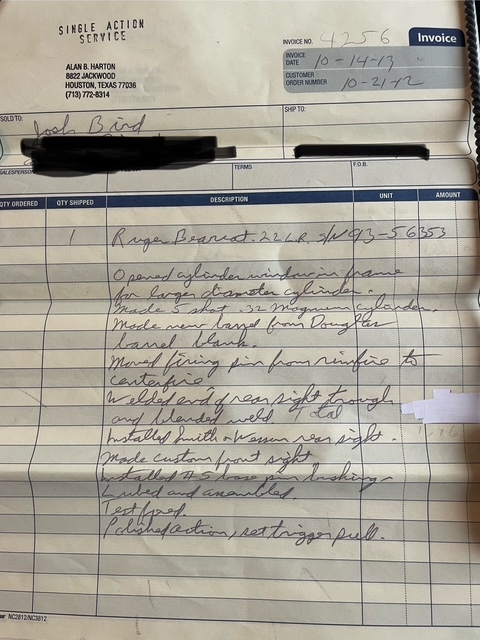 SINGLE ACTION
SERVICE
INVOICE NO. 4256 Invoice
ALAN B. HARTON
8822 JACKWOOD
HOUSTON, TEXAS 77036
(713) 772-8314
INVOICE DATE 10-14-13
CUSTOMER ORDER NUMBER 10-21-12
SOLD TO: SHIP TO:
Josh Bird
SALESPERSON TERMS F.O.B.
QTY ORDERED QTY SHIPPED DESCRIPTION UNIT AMOUNT
1 Ruger Bearcat .22 L.R. S/N 93-56353
Opened cylinder window in frame
for larger diameter cylinder.
Made 5 shot .32 Magnum cylinder.
Made new barrel from Douglas
barrel blank.
Moved firing pin from rimfire to
centerfire
Welded end of rear sight trough
and blended weld. Total
Installed Smith & Wesson rear sight.
Made custom front sight
Installed #5 base pin bushing
Lubed and assembled.
Test fired.
Polished action, set trigger pull.
NC2812/NC3812